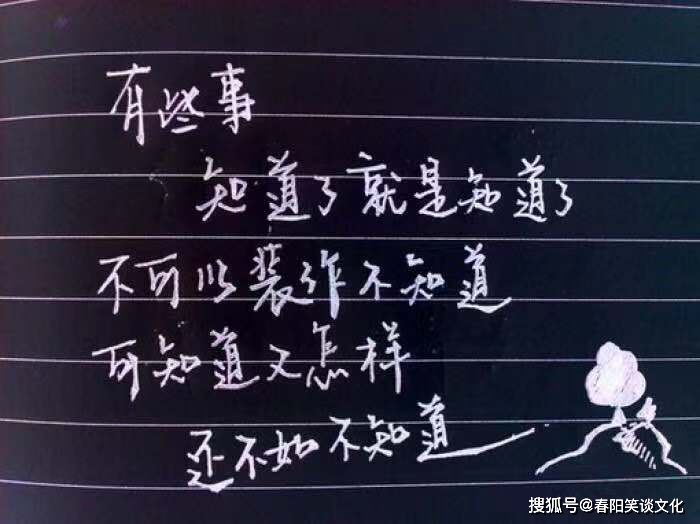 有些事
知道了就是知道了
不可以装作不知道
可知道又怎样
还不如不知道
搜狐号@春阳笑谈文化